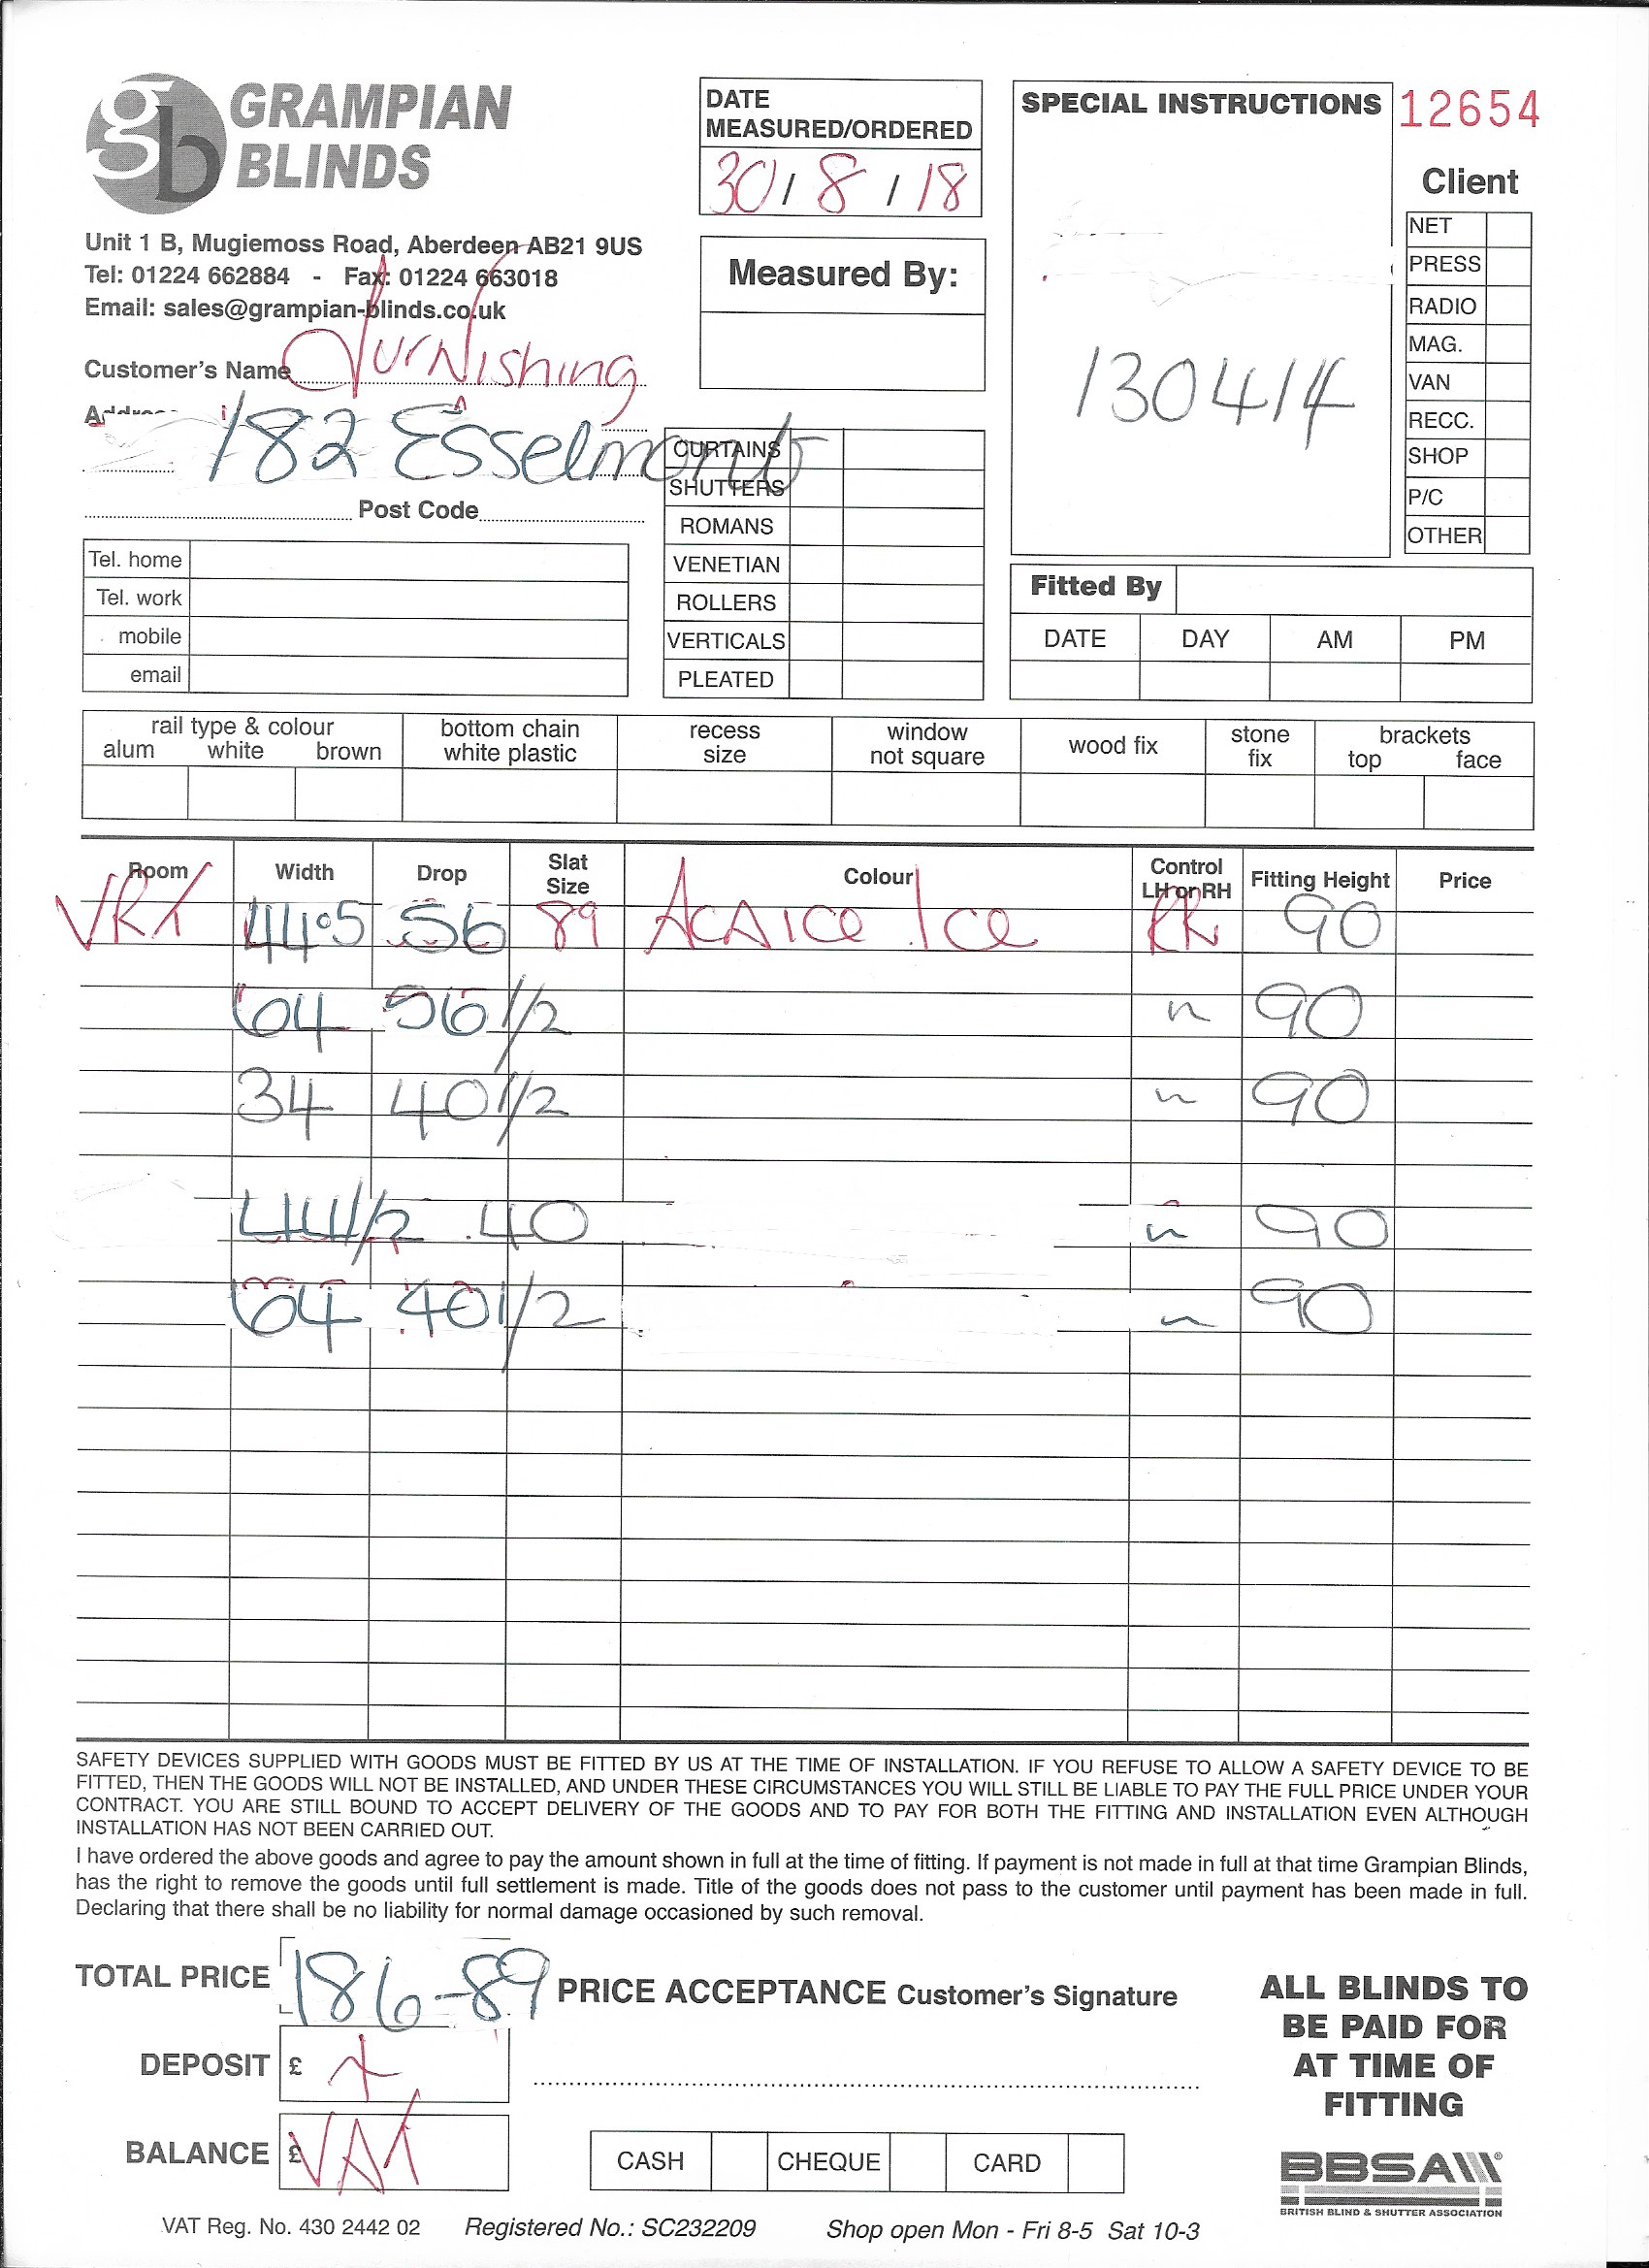 gb GRAMPIAN BLINDS
Unit 1 B, Mugiemoss Road, Aberdeen AB21 9US
Tel: 01224 662884 - Fax: 01224 663018
Email: sales@grampian-blinds.co.uk
DATE MEASURED/ORDERED
30/8/18
Measured By:
SPECIAL INSTRUCTIONS
130414
12654
Client
NET
PRESS
RADIO
MAG.
VAN
RECC.
SHOP
P/C
OTHER
Customer's Name Furnishing
Address 182 Esselmont
Post Code
Tel. home
Tel. work
mobile
email
CURTAINS
SHUTTERS
ROMANS
VENETIAN
ROLLERS
VERTICALS
PLEATED
Fitted By
DATE DAY AM PM
rail type & colour
alum white brown
bottom chain
white plastic
recess
size
window
not square
wood fix
stone
fix
brackets
top face
Room Width Drop Slat Size Colour Control LH or RH Fitting Height Price
44.5 56 89 Ice RR 90
64 56 1/2 " 90
34 40 1/2 " 90
44 1/2 40 " 90
64 40 1/2 " 90
SAFETY DEVICES SUPPLIED WITH GOODS MUST BE FITTED BY US AT THE TIME OF INSTALLATION. IF YOU REFUSE TO ALLOW A SAFETY DEVICE TO BE
FITTED, THEN THE GOODS WILL NOT BE INSTALLED, AND UNDER THESE CIRCUMSTANCES YOU WILL STILL BE LIABLE TO PAY THE FULL PRICE UNDER YOUR
CONTRACT. YOU ARE STILL BOUND TO ACCEPT DELIVERY OF THE GOODS AND TO PAY FOR BOTH THE FITTING AND INSTALLATION EVEN ALTHOUGH
INSTALLATION HAS NOT BEEN CARRIED OUT.
I have ordered the above goods and agree to pay the amount shown in full at the time of fitting. If payment is not made in full at that time Grampian Blinds,
has the right to remove the goods until full settlement is made. Title of the goods does not pass to the customer until payment has been made in full.
Declaring that there shall be no liability for normal damage occasioned by such removal.
TOTAL PRICE 186-89
PRICE ACCEPTANCE Customer's Signature
DEPOSIT £ +
BALANCE £ VAT
CASH CHEQUE CARD
ALL BLINDS TO
BE PAID FOR
AT TIME OF
FITTING
BBSA
BRITISH BLIND & SHUTTER ASSOCIATION
VAT Reg. No. 430 2442 02 Registered No.: SC232209 Shop open Mon - Fri 8-5 Sat 10-3